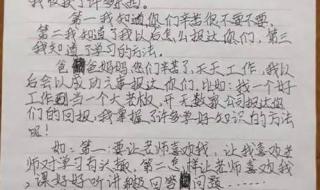 我收获了许多东西。
第一我知道你们辛苦很不要不要,
第三我知道了我以后怎么报达你们,第三
我知道了学习的方法。
爸妈妈您们辛苦了,天天工作,我以
后会以成功元事报达你们,比如:找一个好
工作当一个大老板,开无数家公司报达你
们的回报,我掌握了许多学好知识的方法
呢!
如:第一:要让老师喜欢我,让我喜欢老
师对学习有头趣,第二怎样让老师喜欢我
,课好好听讲 回答 问题……